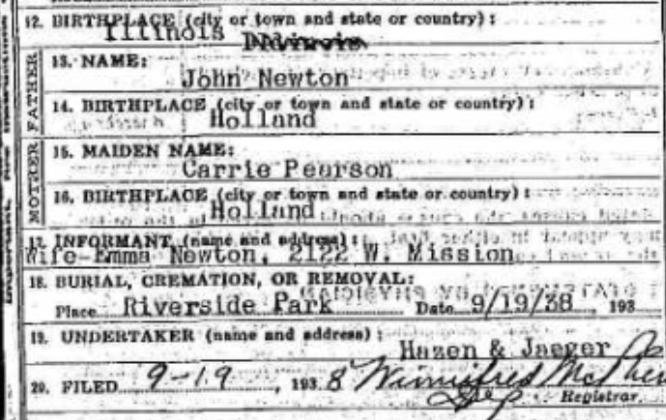 12. BIRTHPLACE (city or town and state or country):
Illinois
FATHER
13. NAME:
John Newton
14. BIRTHPLACE (city or town and state or country):
Holland
MOTHER
15. MAIDEN NAME:
Carrie Pearson
16. BIRTHPLACE (city or town and state or country):
Holland
17. INFORMANT (name and address):
Wife-Emma Newton, 2122 W. Mission
18. BURIAL, CREMATION, OR REMOVAL:
Place Riverside Park Date 9/19/38, 193
19. UNDERTAKER (name and address):
Hazen & Jaeger
20. FILED 9-19, 193 8 Winnifred
Dep Registrar.